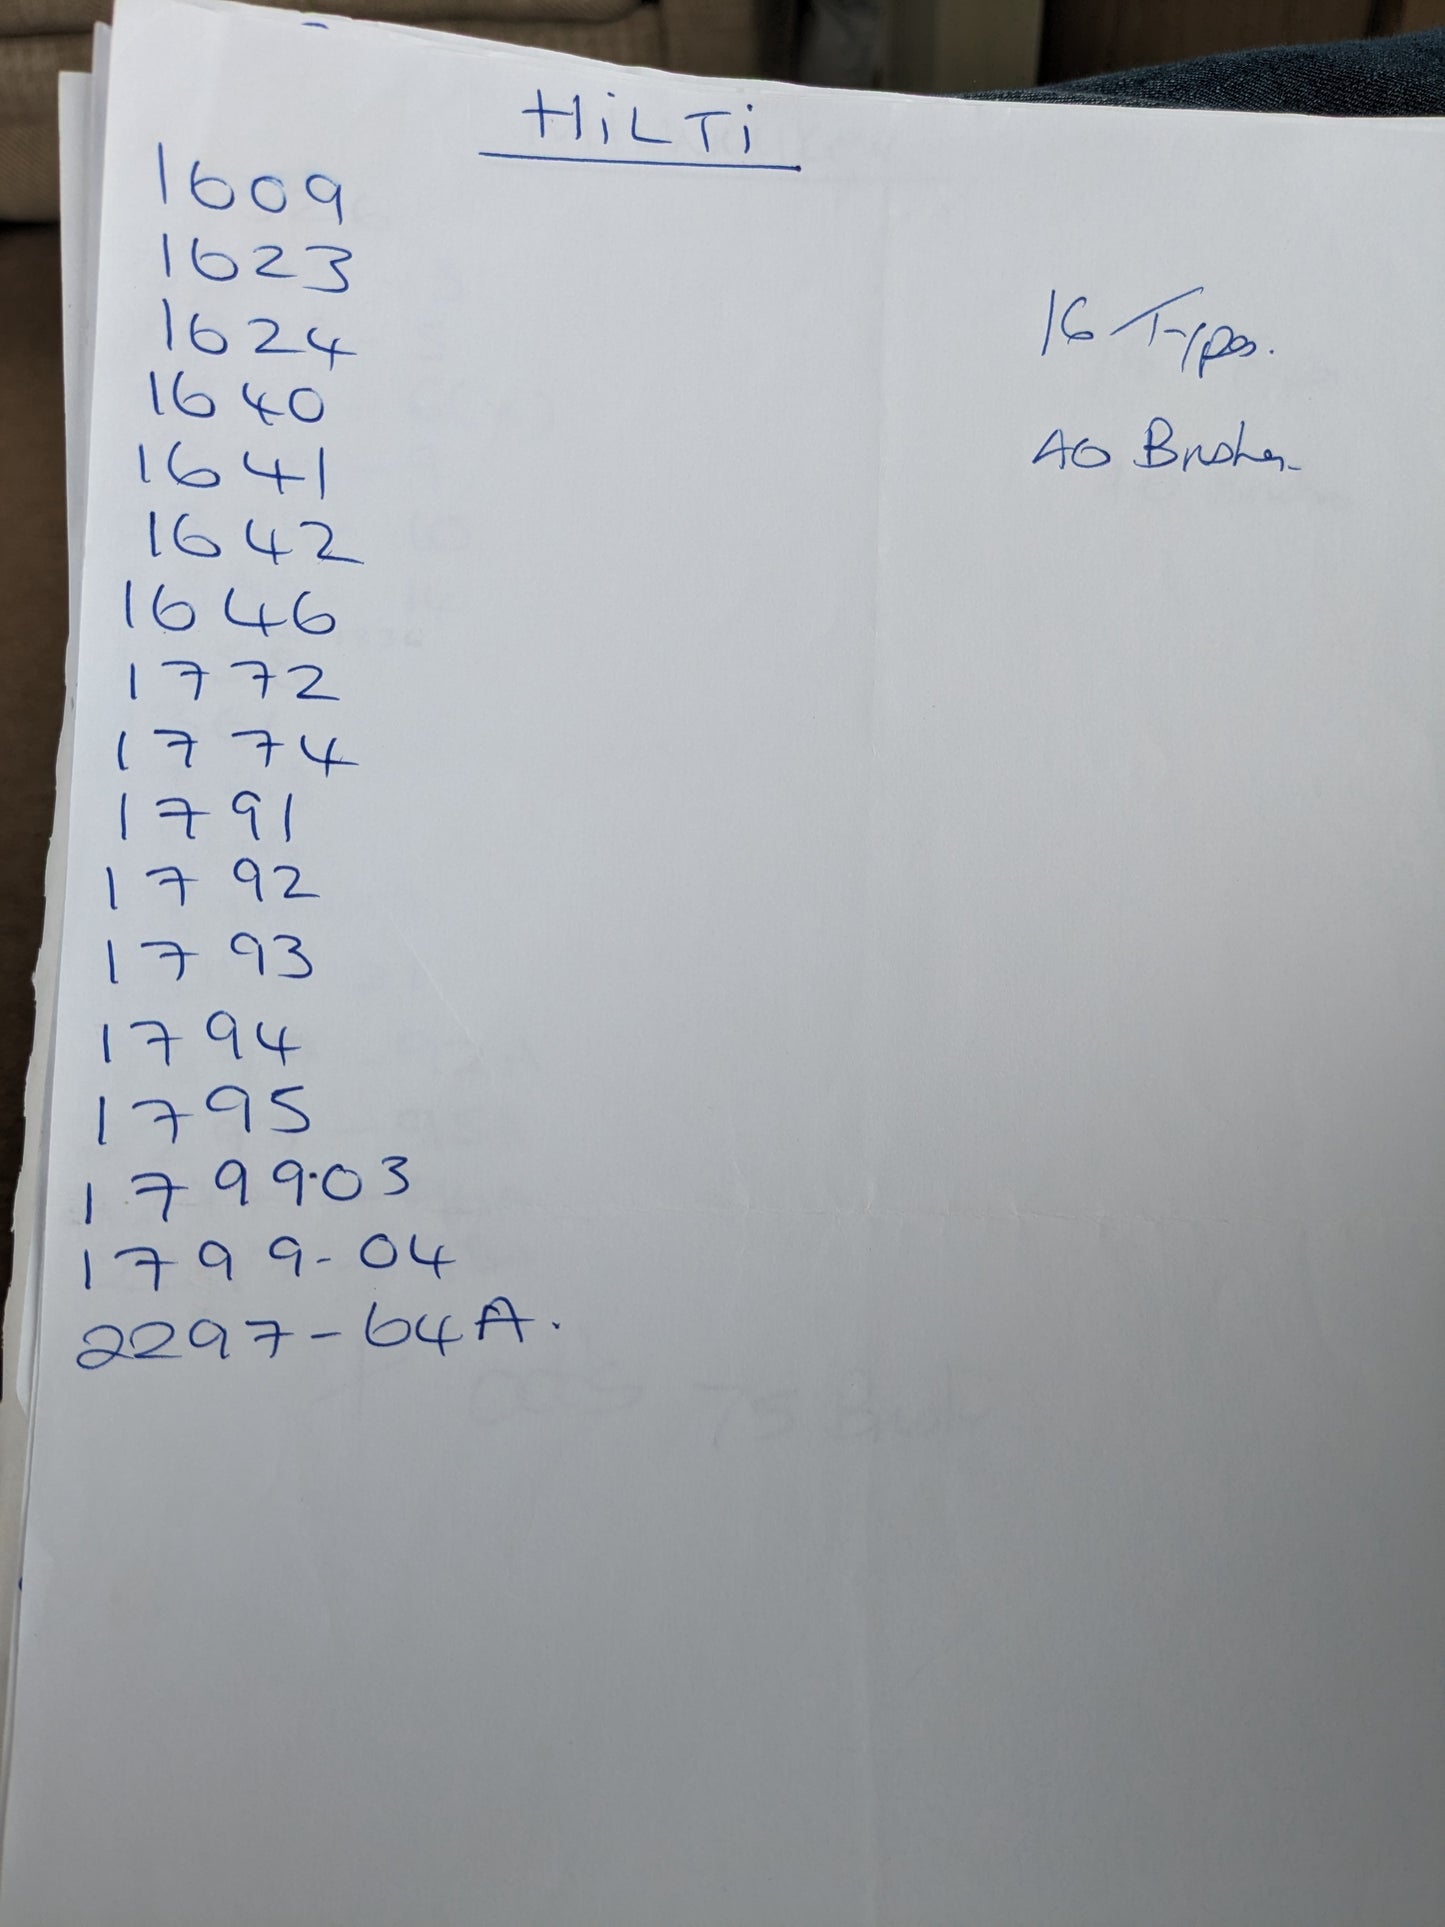 HiLTi
1609
1623
1624
1640
1641
1642
1646
1772
1774
1791
1792
1793
1794
1795
1799.03
1799-04
2297-64A.
16 Types.